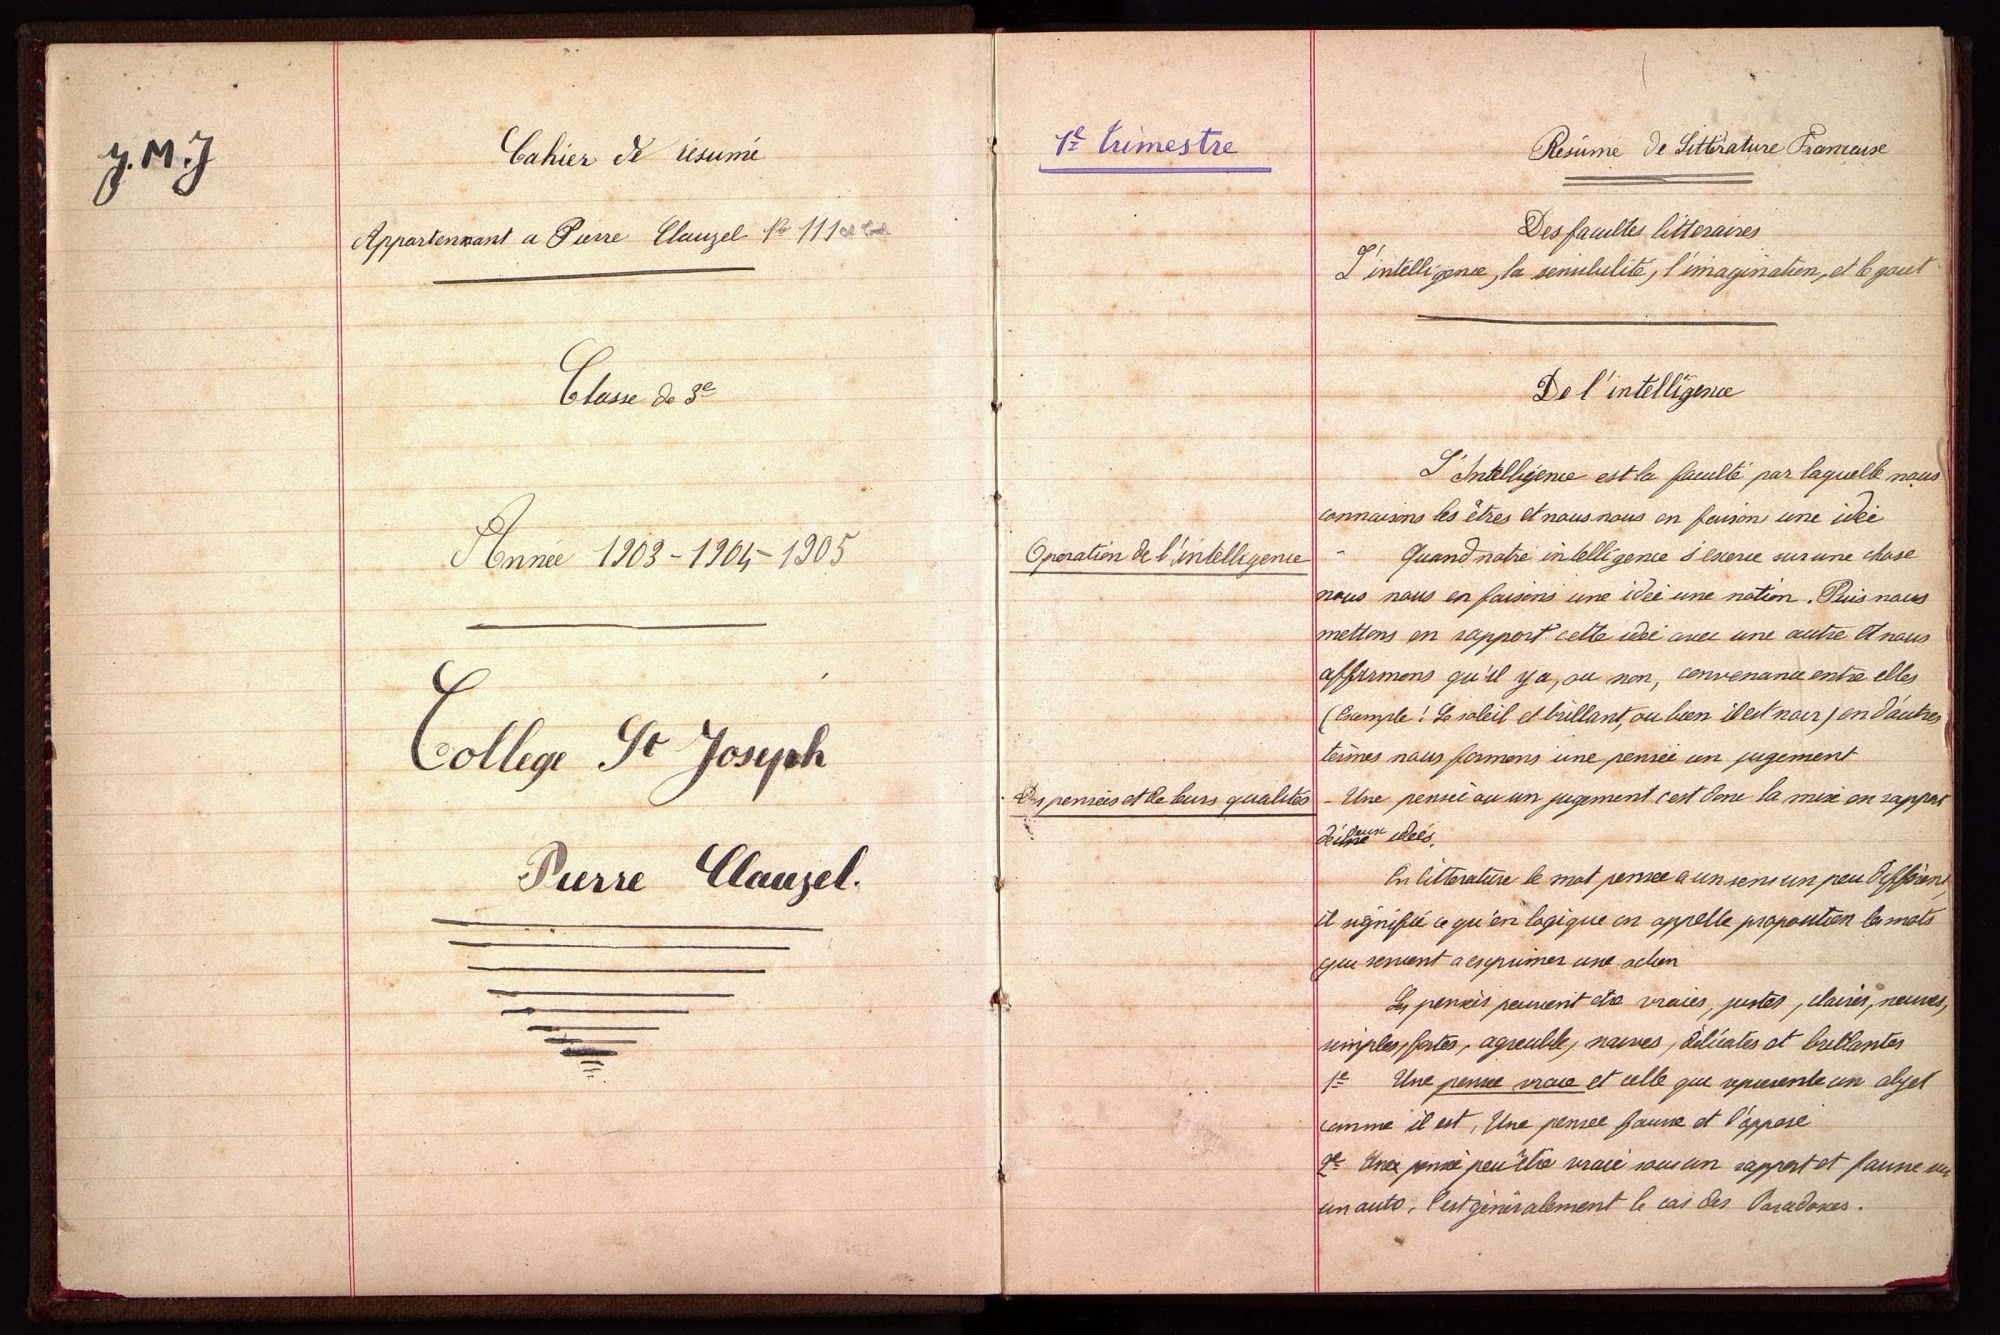 J.M.J
Cahier de résumé
Appartennant a Pierre Clauzel No 111
Classe de 3e
Année 1903-1904-1905
College St Joseph
Pierre Clauzel.
1e trimestre
Résumé de Littérature Française
Des facultes litteraires
L'intelligence, la sensibilité, l'imagination, et le gout
De l'intelligence
L'Intelligence est la faculté par laquelle nous
connaisons les êtres et nous nous en faison une idée
Operation de l'intelligence - Quand notre intelligence s'exerce sur une chose
nous nous en faisons une idée une notion. Puis nous
mettons en rapport cette idée avec une autre et nous
affirmons qu'il y a, ou non, convenance entre elles
(Exemple: Le soleil et brillant, ou bien il est noir) en d'autres
termes nous formons une pensée un jugement
Des pensées et de leurs qualités - Une pensée ou un jugement c'est donc la mise en rapport
de deux idées.
En litterature le mot pensee a un sens un peu different
il signifie ce qu'en logique on appelle proposition les mots
qui servent a exprimer une
Les pensées peuvent etre vraies, justes, claires, neuves,
simples, fortes, agreable, naives, délicates et brillantes
1e Une pensee vraie et celle qui represente un objet
comme il est, Une pensee fausse et l'opposé
2e Une pensée peu être vraie sous un rapport et fausse
un autre, c'est généralement le cas des Paradoxes.